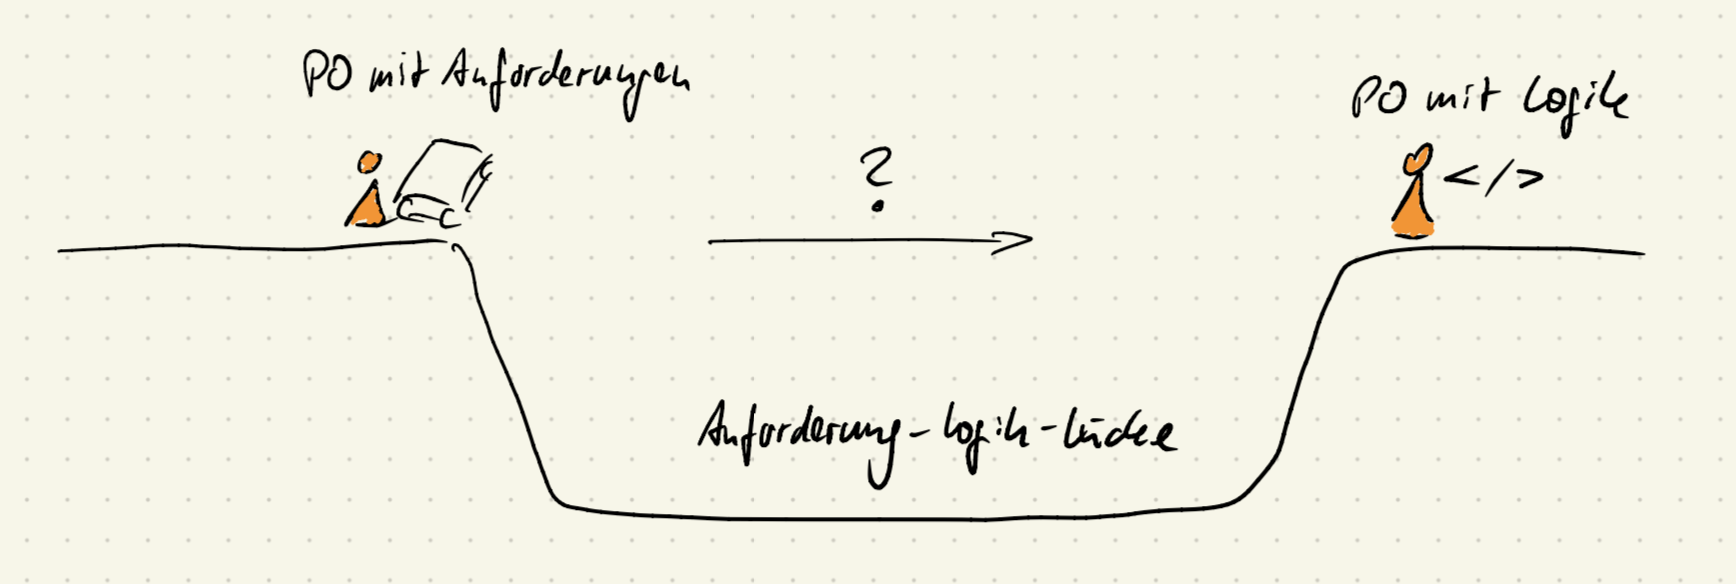 PO mit Anforderungen
PO mit Logik
?
</>
Anforderung-Logik-Lücke